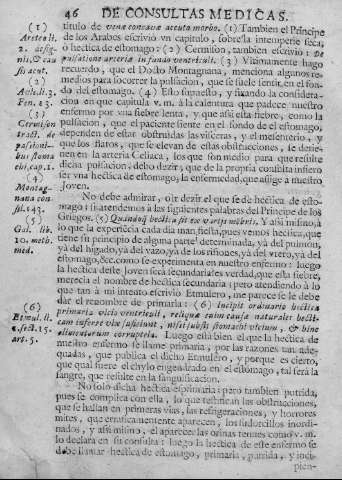 46 DE CONSULTAS MEDICAS.
(1)
Areteo li.
2. de sig-
nis, & cau
sis acut.
(2)
Avic. li. 3.
Fen. 13.
(3)
Cermison
tract. de
passioni-
bus stoma
chi, cap. 1.
(4)
Montag-
nana con-
sil. 143.
(5)
Gal. lib.
10. meth.
med.
(6)
Etmul. li.
2. sect. 15.
art. 5.
titulo de venæ concavæ accuto morbo. (1) Tambien el Principe
de los Arabes escrivió un capitulo, sobre la intemperie seca,
ò hectica de estomago: (2) Cermison, tambien escrivio: De
pulsatione arteriæ in fundo ventriculi. (3) Ultimamente hago
recuerdo, que el Docto Montagnana, menciona algunos re-
medios para socorrer la pulsacion, que se suele sentir, en el fon-
do del estomago. (4) Esto supuesto, y fixando la considera-
cion en que capitula v. m. à la calentura que padece nuestro
enfermo por una fiebre lenta, y que assi esta fiebre, como la
pulsacion, que el paciente siente en el fondo de el estomago,
dependen de estar obstruidas las visceras, y el mesenterio, y
que los flatos, que se elevan de estas obstrucciones, se detie-
nen en la arteria Celiaca, los que son medio para que resulte
dicha pulsacion: debo dezir, que de la propria consulta infiero
ser una hectica de estomago, la enfermedad, que aflige à nuestro
Joven.
No debe admirar, oìr dezir, el que se dè hectica de esto-
mago: si atendemos à las siguientes palabras del Principe de los
Griegos. (5) Quandoq; hectica fit ex varijs mẽbris. Y assi mismo, à
lo que la experiẽcia cada dia manifiesta, pues vemos hectica, que
tiene su principio de alguna parte determinada, yà del pulmòn,
yà del higado, yà del vazo, yà de los riñones, yà del utero, yà del
estomago, &c. como se experimenta en nuestro enfermo: luego
la hectica deste Joven serà secundaria? es verdad, que esta fiebre,
merecia el nombre de hectica secundaria: pero atendiendo à lo
que tan à mi intento escrivio Etmulero, me parece se le debe
dar el renombre de primaria: (6) Incipit ordinario hectica
primaria vicio ventriculi, reliqua enim causæ naturales hecti-
cam inferre vix sufficiunt, nisi subsit stomachi victum, & hinc
chylificatio corruptela. Luego està bien el que la hectica de
nuestro enfermo se llame primaria, por las razones tan ade-
quadas, que publica el dicho Etmulero, y porque es cierto,
que qual fuere el chylo engendrado en el estomago, tal serà la
sangre, que resulte en la sanguificacion.
No solo dicha hectica es primaria: pero tambien putrida,
pues se complica con ella, lo que testifican las obstrucciones,
que se hallan en primeras vias, las refrigeraciones, y horrores
mites, que erraticamente aparecen, los sudorcillos inordi-
nados, y assi mismo, el aparecer las orinas tenues como v. m.
lo declara en su consulta: luego la hectica de este enfermo se
debe llamar hectica de estomago, primaria, putrida, y inci-
pien-